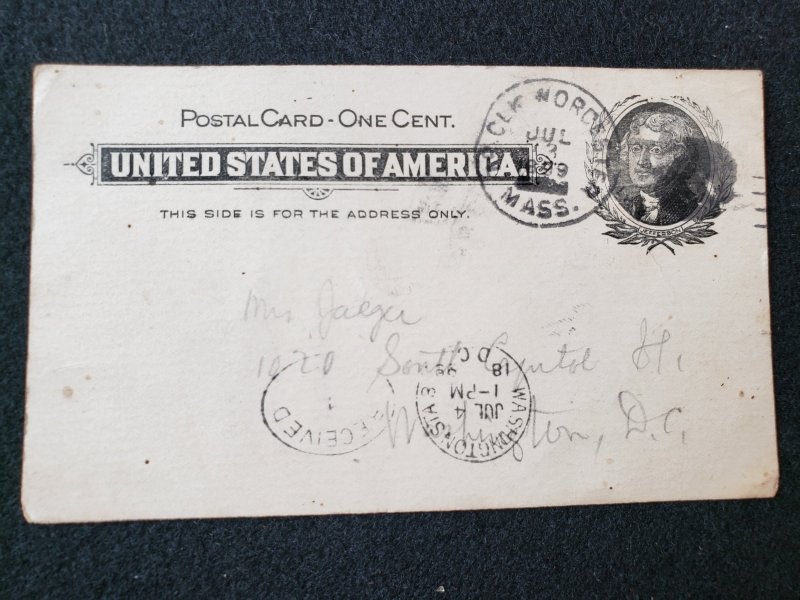 POSTAL CARD - ONE CENT.
UNITED STATES OF AMERICA.
THIS SIDE IS FOR THE ADDRESS ONLY.
JUL
3
MASS.
JEFFERSON
Mrs Jaeger
1020 South Capitol St.
Washington, D.C.
RECEIVED
WASHINGTON STA B
JUL 4
1-PM
18 99
D C